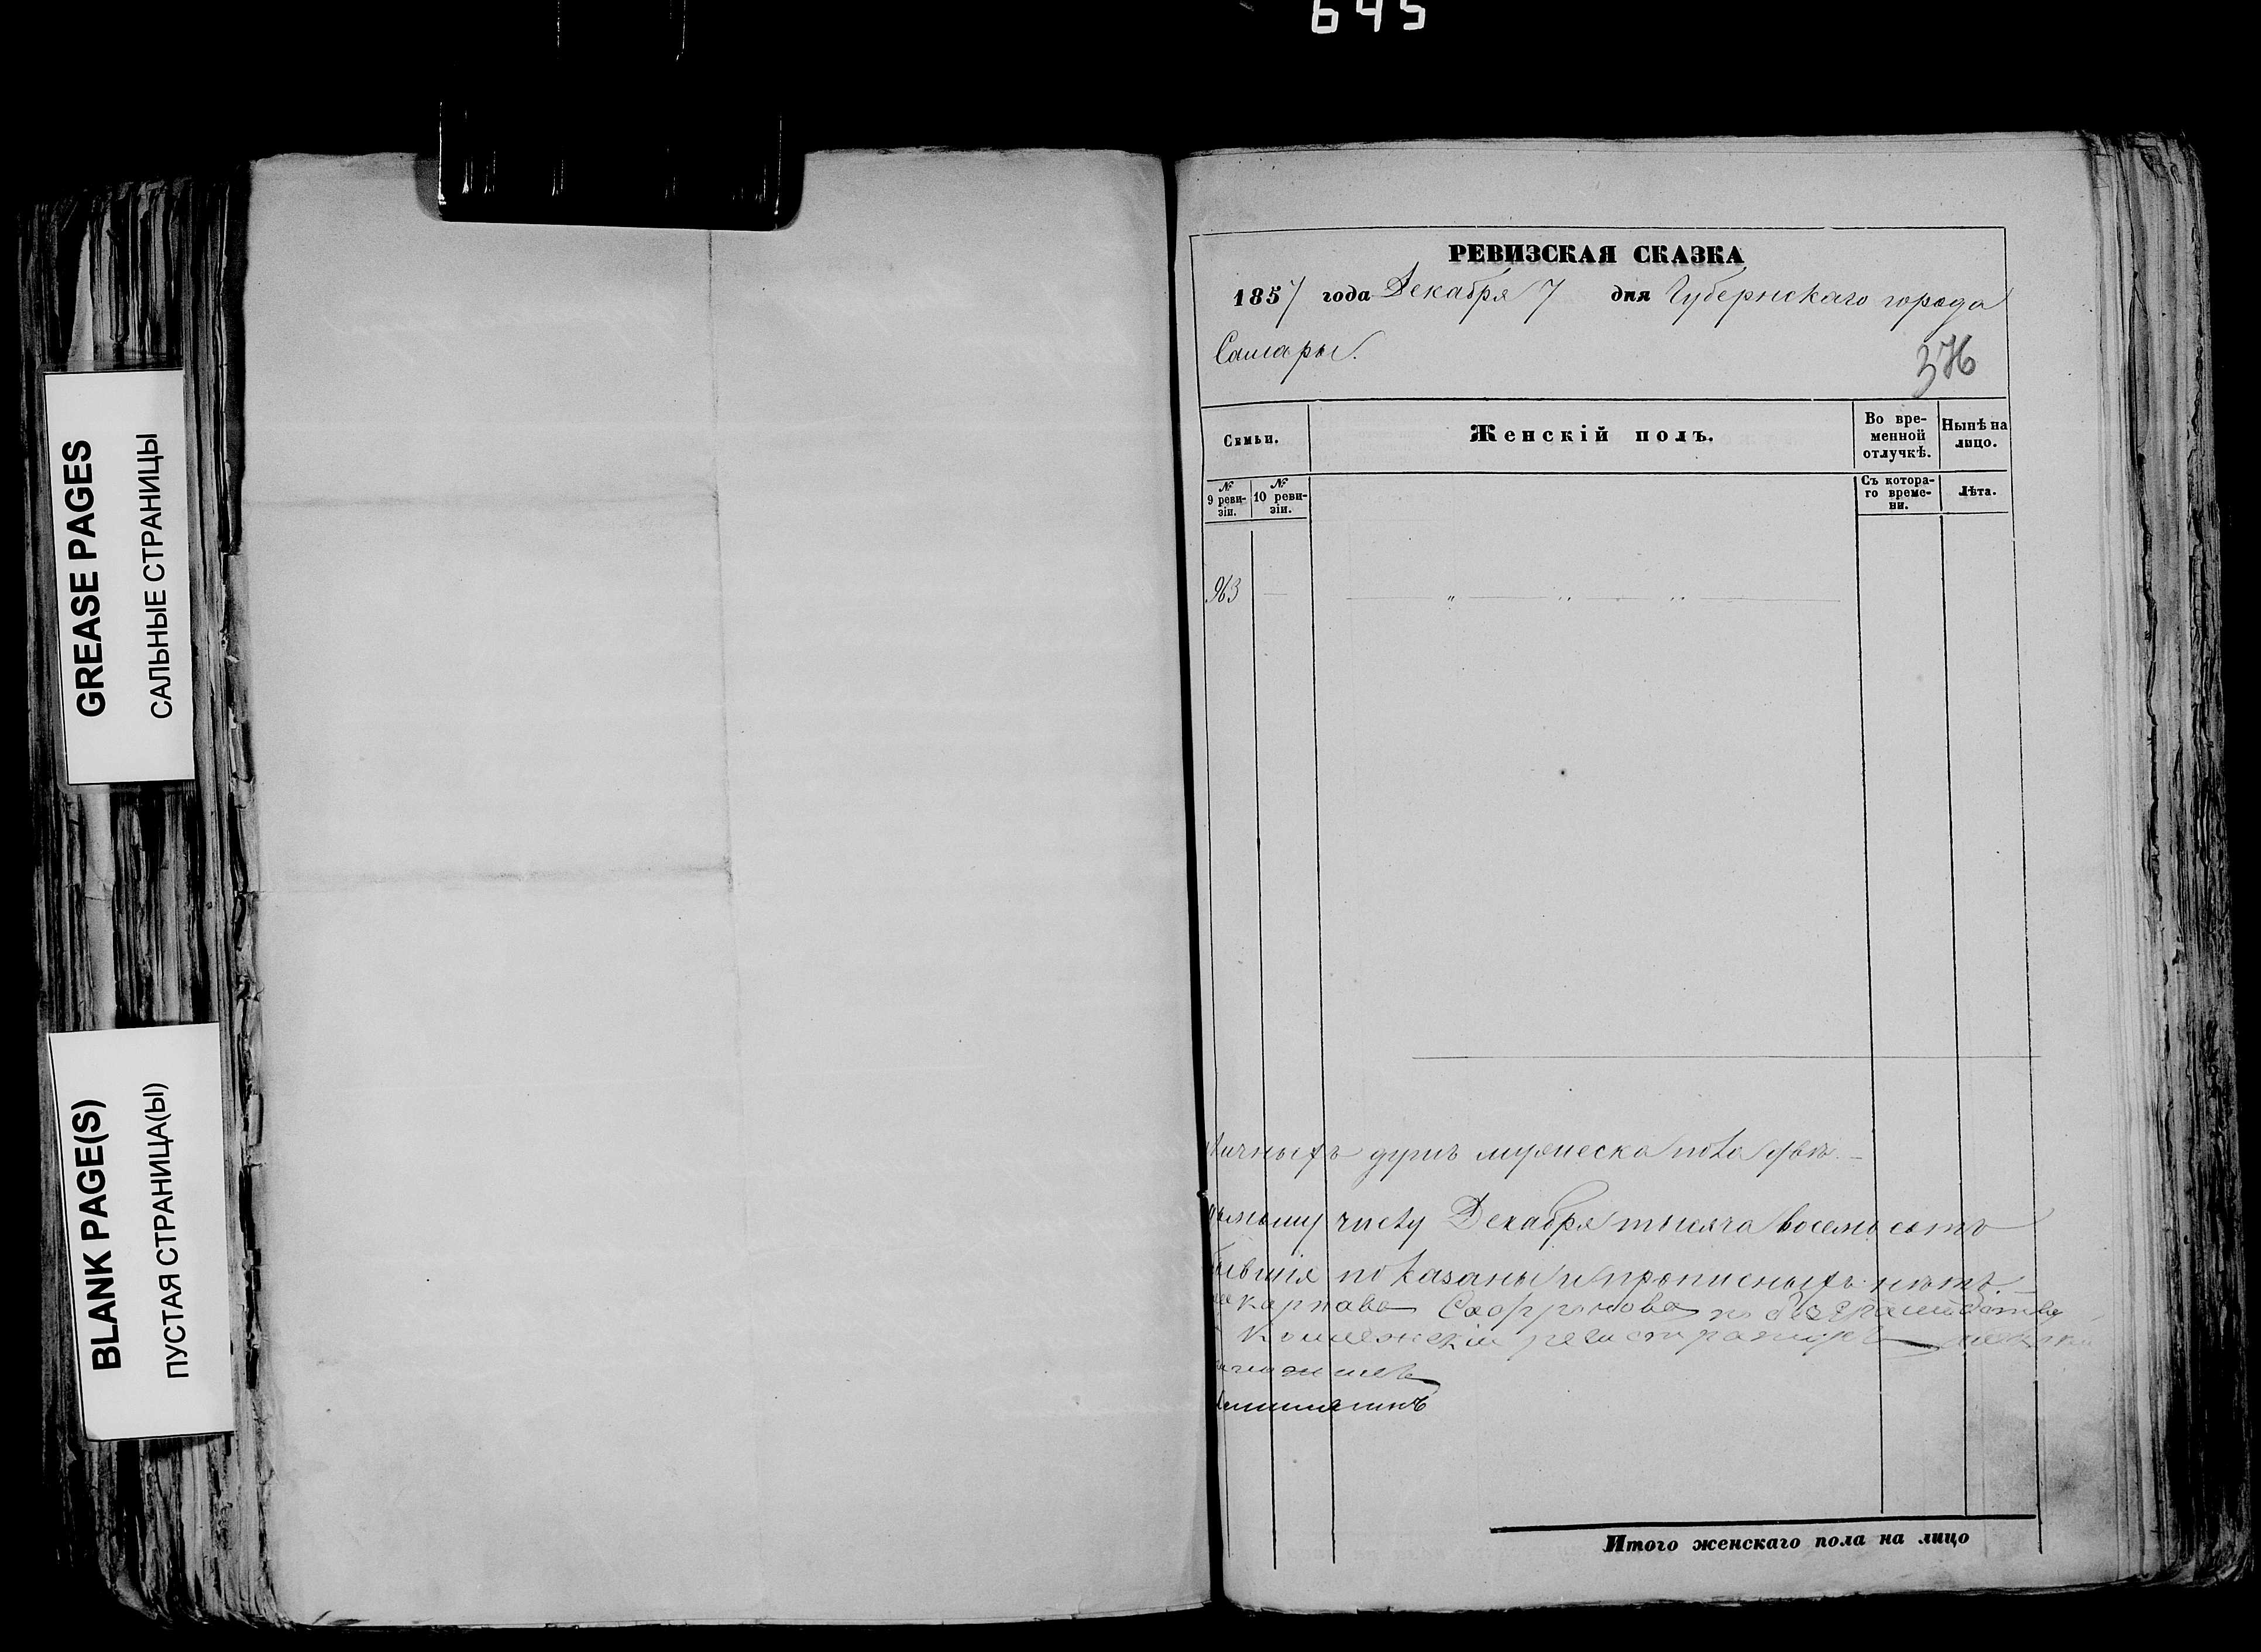 645
GREASE PAGES
САЛЬНЫЕ СТРАНИЦЫ
BLANK PAGE(S)
ПУСТАЯ СТРАНИЦА(Ы)
РЕВИЗСКАЯ СКАЗКА
1857 года Декабря 7 дня Губернскаго города
Самары.
376
Семьи.
Женскій полъ.
Во вре-
менной
отлучкѣ.
Нынѣ на
лицо.
№
9 реви-
зіи.
№
10 реви-
зіи.
Съ котора-
го време-
ни.
Лѣта.
963
душъ мужеска пола
числу Декабря тысяча восемьсотъ
показаны и прописныхъ нѣтъ.
Коллежскій регистраторъ
Итого женскаго пола на лицо